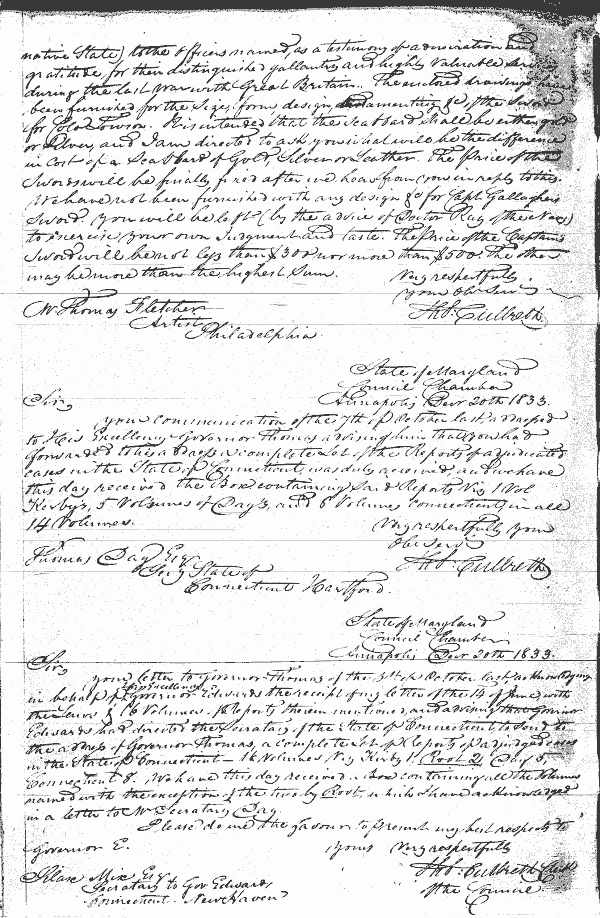 native State) to the officers named, as a testimony of admiration and
gratitude for their distinguished gallantry and highly valuable services
during the last war with Great Britain. The enclosed drawings have
been furnished for the size, form, design, ornamenting &c of the Sword
for Colo Towson. It is intended that the scabbard shall be either gold
or silver, and I am directed to ask you what will be the difference
in cost of a Scabbard of Gold, Silver or Leather. The price of the
Swords will be finally fixed after we hear from you in reply to this.
We have not been furnished with any design &c for Capt. Gallagher's
Sword. you will be left (by the advice of Doctor Ray of the Navy)
to exercise your own Judgment and taste. The price of the Captains
Sword will be not less than $300 nor more than $500: the other
may be more than the highest sum.
Very respectfully
your Obt Servt
Thos. Culbreth
Mr Thomas Fletcher
Artist
Philadelphia.
State of Maryland
Council Chamber
Annapolis Decr 20th 1833.
Sir,
your communication of the 7th of October last, addressed
to His Excellency Governor Thomas advising him that you had
forwarded to his address a complete set of the Reports of adjudicated
cases in the State of Connecticut, was duly received, and we have
this day received the Box containing said Reports Viz 1 Vol
Kirby's, 5 Volumes of Day's, and 8 Volumes Connecticut, in all
14 Volumes.
Very respectfully your
Obt Servt
Thos. Culbreth
Thomas Day Esq
Secy State of
Connecticut Hartford.
State of Maryland
Council Chamber
Annapolis Decr 20th 1833.
Sir,
your letter to Governor Thomas of the 31st of October last, acknowledging
in behalf of His Excellency Governor Edwards the receipt of my letter of the 14 of June, with
the Laws & 16 Volumes of Reports therein mentioned, and advising that Governor
Edwards had directed the Secretary of the State of Connecticut, to send to
the address of Governor Thomas, a complete set of Reports of adjudged cases
in the State of Connecticut — 16 Volumes Viz Kirby 1. Root 2, Day 5,
Connecticut 8. We have this day received a Box containing all the Volumes
named with the exception of the two by Root, which I have acknowledged
in a letter to Mr Secretary Day.
Please do me the favour to present my best respects to
Governor E.
yours Very respectfully
Thos. Culbreth Clerk
of the Council
Isaac Mix Esq
Secretary to Gov Edwards
Connecticut New Haven